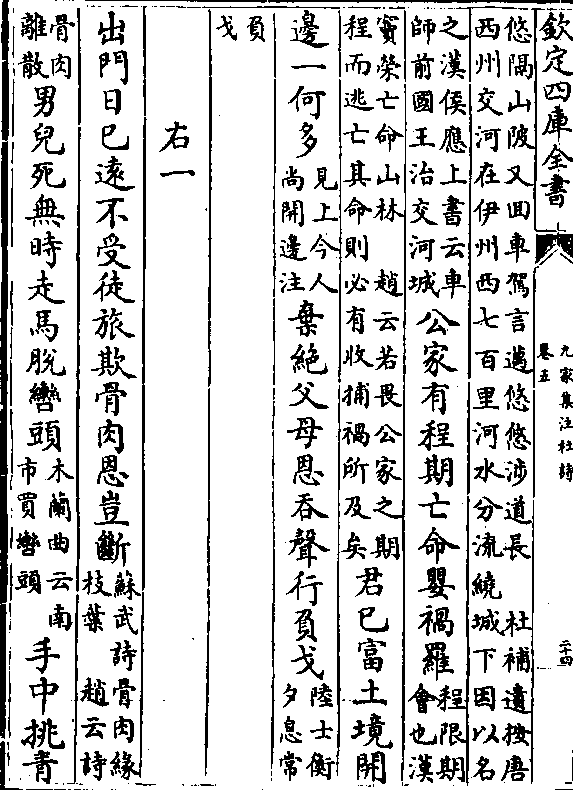 欽定四庫全書
九家集注杜詩
卷五
二十四
悠隔山陂又回車駕言邁悠悠涉道長 杜補遺按唐
西州交河在伊州西七百里河水分流繞城下因以名
之漢侯應上書云車
師前國王治交河城
公家有程期亡命嬰禍羅
程限期
會也漢
竇榮亡命山林 趙云若畏公家之期
程而逃亡其命則必有收捕禍所及矣
君已富土境開
邊一何多
見上今人
尚開邊注
棄絕父母恩吞聲行負戈
陸士衡
夕息常
負
戈
右一
出門日已遠不受徒旅欺骨肉恩豈斷
蘇武詩骨肉緣
枝葉 趙云詩
骨肉
離散
男兒死無時走馬脫轡頭
木蘭曲云南
市買轡頭
手中挑青